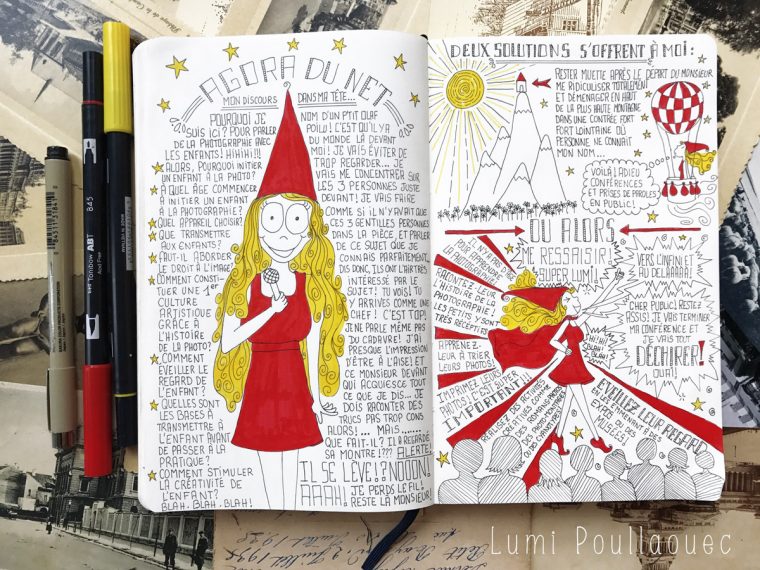 AGORA DU NET
MON DISCOURS
DANS MA TÊTE...
POURQUOI JE
SUIS ICI? POUR PARLER
DE LA PHOTOGRAPHIE AVEC
LES ENFANTS! HIHIHI!!!
ALORS, POURQUOI INITIER
UN ENFANT À LA PHOTO?
À QUEL ÂGE COMMENCER
À INITIER UN ENFANT
À LA PHOTOGRAPHIE?
QUEL APPAREIL CHOISIR?
QUE TRANSMETTRE
AUX ENFANTS?
FAUT-IL ABORDER
LE DROIT À L'IMAGE?
COMMENT CONSTI-
TUER UNE 1ère
CULTURE
ARTISTIQUE
GRÂCE À
L'HISTOIRE
DE LA PHOTO?
COMMENT
ÉVEILLER LE
REGARD DE
L'ENFANT?
QUELLES SONT
LES BASES À
TRANSMETTRE À
L'ENFANT AVANT
DE PASSER À LA
PRATIQUE?
COMMENT STIMULER
LA CRÉATIVITÉ DE
L'ENFANT?
BLAH, BLAH, BLAH!
NOM D'UN P'TIT OLAF
POILU! C'EST QU'IL Y A
DU MONDE LÀ DEVANT
MOI! JE VAIS ÉVITER DE
TROP REGARDER... JE
VAIS ME CONCENTRER SUR
LES 3 PERSONNES JUSTE
DEVANT! JE VAIS FAIRE
COMME SI IL N'Y AVAIT QUE
CES 3 GENTILLES PERSONNES
DANS LA PIÈCE ET PARLER
DE CE SUJET QUE JE
CONNAIS PARFAITEMENT.
DIS DONC, ILS ONT L'AIR TRÈS
INTÉRESSÉ PAR LE
SUJET! TU VOIS! TU
Y ARRIVES COMME UNE
CHEF! C'EST TOP!
JE NE PARLE MÊME PAS
DU CADAVRE! J'AI
PRESQUE L'IMPRESSION
D'ÊTRE À L'AISE! ET
CE MONSIEUR DEVANT
QUI ACQUIESCE TOUT
CE QUE JE DIS... JE
DOIS RACONTER DES
TRUCS PAS TROP CONS
ALORS!... MAIS...........
QUE FAIT-IL? IL A REGARDÉ
SA MONTRE!??? ALERTE!
IL SE LÈVE!? NOOON!
AAAH! JE PERDS LE FIL!
RESTE LÀ MONSIEUR!
DEUX SOLUTIONS S'OFFRENT À MOI:
RESTER MUETTE APRÈS LE DÉPART DU MONSIEUR
ME RIDICULISER TOTALEMENT
ET DÉMÉNAGER EN HAUT
DE LA PLUS HAUTE MONTAGNE
DANS UNE CONTRÉE FORT
FORT LOINTAINE OÙ
PERSONNE NE CONNAIT
MON NOM...
VOILÀ! ADIEU
CONFÉRENCES
ET PRISES DE PAROLES
EN PUBLIC!
OU ALORS
ME RESSAISIR!
SUPER LUMI!
VERS L'INFINI ET
AU DELÀÀÀÀ!
CHER PUBLIC! RESTEZ
ASSIS! JE VAIS TERMINER
MA CONFÉRENCE ET
JE VAIS TOUT
DÉCHIRER!
OUAI!
HIHIHI!
BLAH!
BLAH!
IL N'Y A PAS D'ÂGE
POUR APPRENDRE
LA PHOTOGRAPHIE!
RACONTEZ-LEUR
L'HISTOIRE DE LA
PHOTOGRAPHIE!
LES PETITS Y SONT
TRÈS RÉCEPTIFS
APPRENEZ-
LEUR À TRIER
LEURS PHOTOS!
IMPRIMEZ LEURS
PHOTOS! C'EST SUPER
IMPORTANT!!!
RÉALISER DES ACTIVITÉS
CRÉATIVES COMME
ÉVEILLEZ LEUR REGARD
EN LES EMMENANT À DES
EXPOS OU DES
MUSÉES!
Tombow ABT
845
Lumi Poullaouec